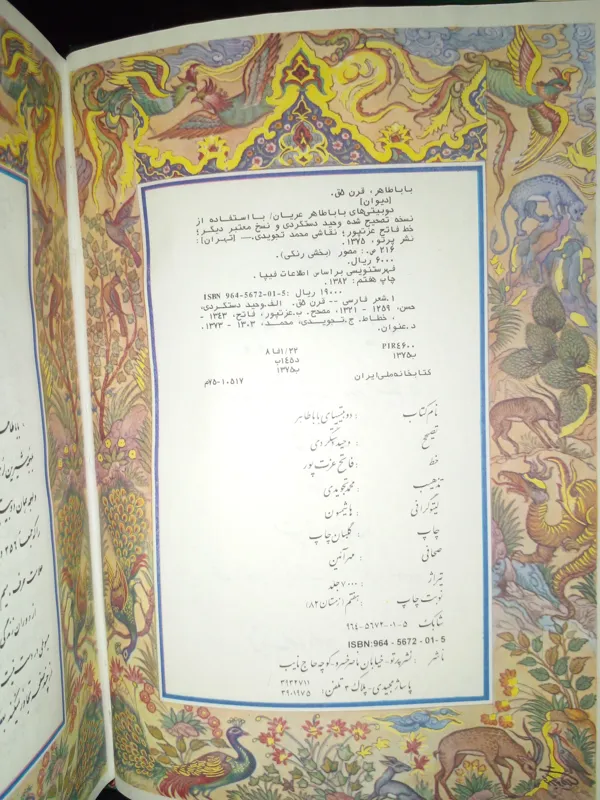 باباطاهر، قرن ۵ق.
[دیوان]
دوبیتی‌های باباطاهر عریان/ با استفاده از
نسخه تصحیح شده وحید دستگردی و نسخ معتبر دیگر؛
خط فاتح عزتپور؛ نقاشی محمد تجویدی.ـــ [تهران]:
نشر پرتو، ۱۳۷۵.
۲۱۶ ص.: مصور (بخشی رنگی).
۶۰۰۰ ریال.
فهرستنویسی براساس اطلاعات فیپا.
چاپ هفتم: ۱۳۸۲.
ISBN 964-5672-01-5: ۱۹۰۰۰ ریال
۱.شعر فارسی -- قرن ۵ق. الف.وحید دستگردی،
حسن، ۱۲۵۹ - ۱۳۲۱، مصحح. ب.عزتپور، فاتح، ۱۳۴۳ -
، خطاط. ج.تجویدی، محمد، ۱۳۰۳ - ۱۳۷۳.
د.عنوان.
PIR۴۶۰۰ ۸فا۱/۲۲
ب۱۳۷۵ د۱۴۵ب
ب۱۳۷۵
کتابخانه ملی ایران ۱۰۵۱۷-۷۵م
نام کتاب : دوبیتیهای باباطاهر
تصحیح : وحید دستگردی
خط : فاتح عزت پور
تذهیب : محمد تجویدی
لیتوگرافی : هاشمیون
چاپ : گلبان چاپ
صحافی : مهرآئین
تیراژ : ۷۰۰۰ جلد
نوبت چاپ : هفتم (زمستان ۸۲)
شابک ۵-۰۱-۵۶۷۲-۹۶۴
ISBN:964 - 5672 - 01- 5
ناشر : نشر پرتو - خیابان ناصر خسرو - کوچه حاج نایب
پاساژ مجیدی - پلاک ۲ تلفن: ۳۹۳۲۷۱۱
۳۹۰۱۹۷۵